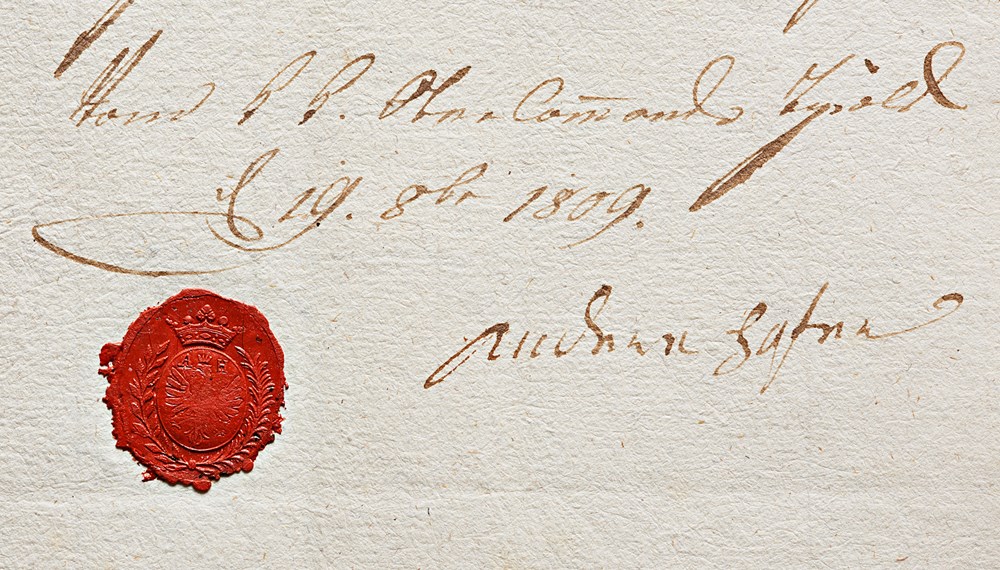 Vom K. K. Ober Com̅ando Tyrol
19. 8br 1809.
Hofer
A H